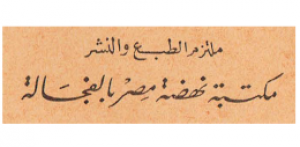 ملتزم الطبع والنشر
مكتبة نهضة مصر بالفجالة